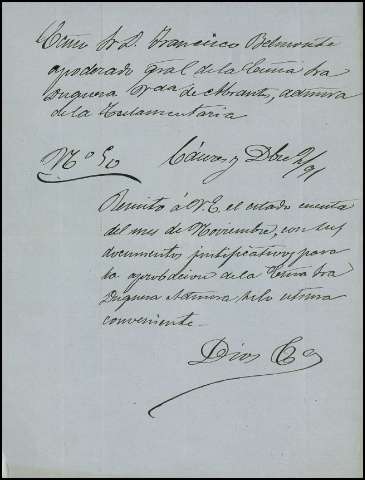 Exmo Sr D. Francisco Belmonte
apoderado gral de la Exma Sra
Duquesa Vda de Abrantes, admora
de la Testamentaria
No 50 Dbre 2/91
Remito á V.E. el estado cuenta
del mes de Noviembre, con sus
documentos justificativos para
la aprobacion de la Exma Sra
Duquesa Admora si lo estima
conveniente.
Dios &a